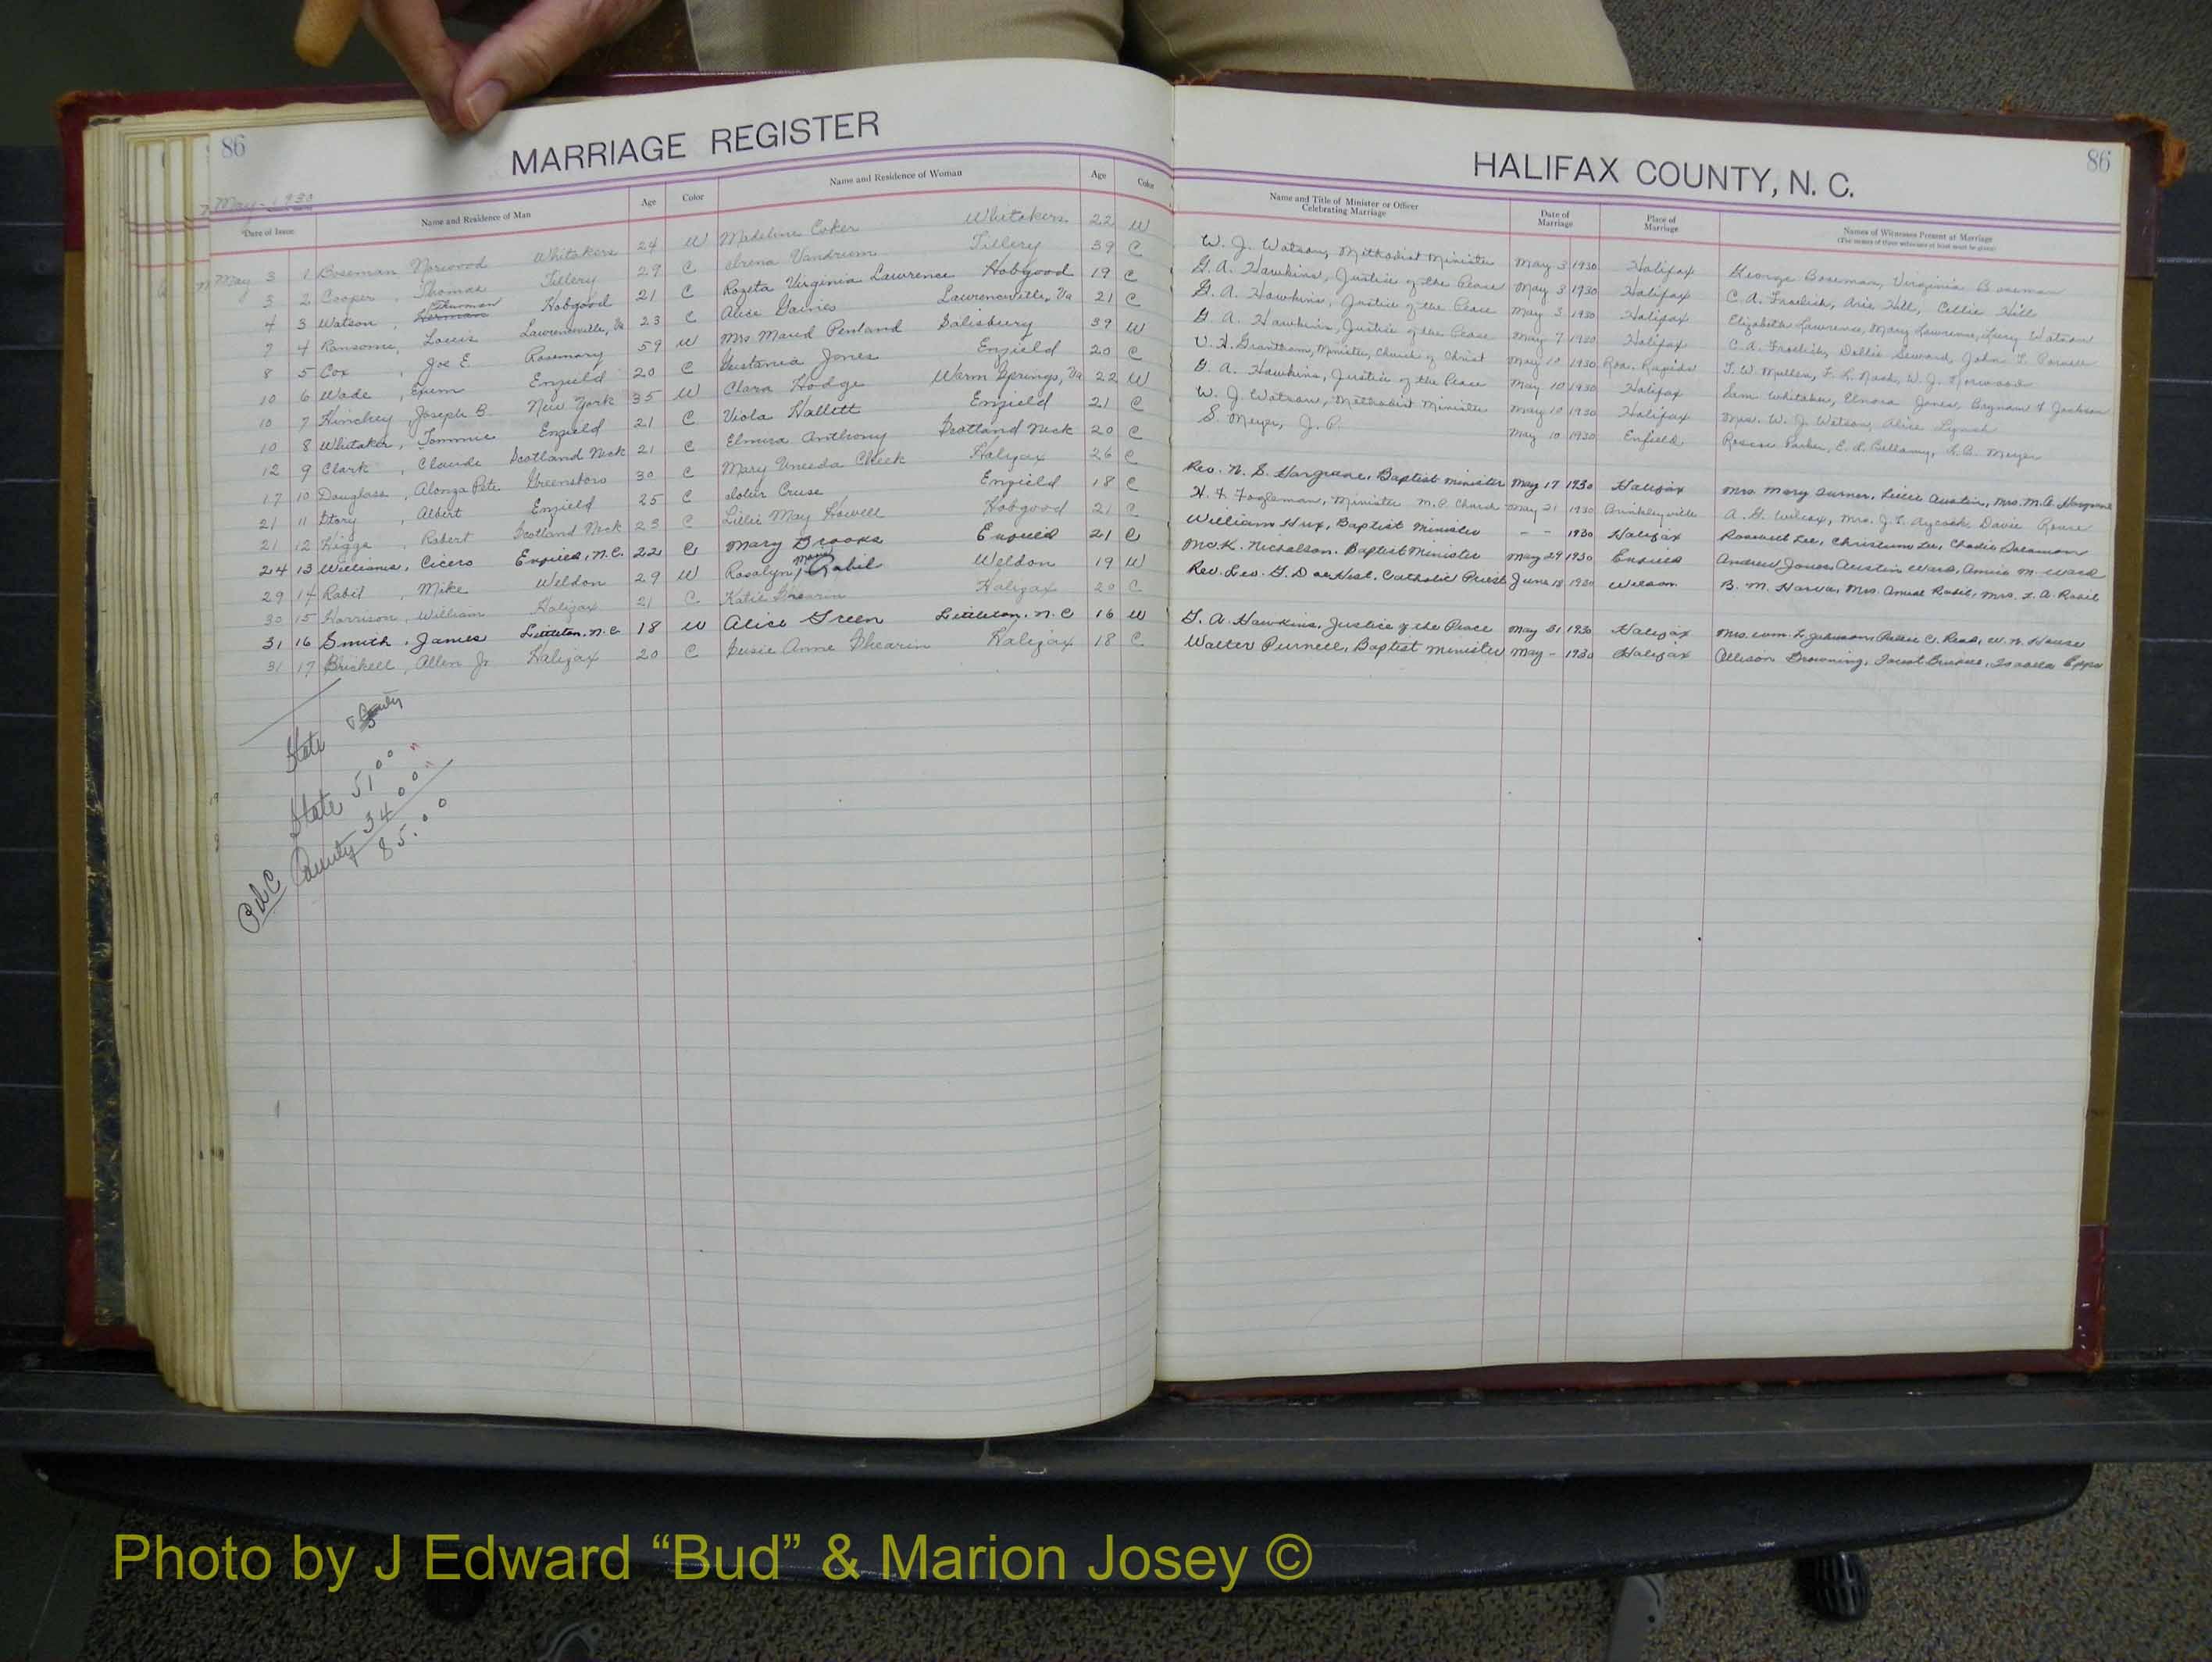 86 MARRIAGE REGISTER
May-1930
Date of Issue Name and Residence of Man Age Color Name and Residence of Woman Age Color
May 3 1 Boseman Norwood Whitakers 24 W Madeline Coker Whitakers 22 W
3 2 Cooper, Thomas Tillery 29 C Vandrum Tillery 39 C
4 3 Watson, Thurman Herman Hobgood 21 C Rozeta Virginia Lawrence Hobgood 19 C
7 4 Ransome, Louis Lawrenceville, Va 23 C Alice Gaines Lawrenceville, Va 21 C
8 5 Cox, Joe E. Rosemary 59 W Mrs Maud Penland Salisbury 39 W
10 6 Wade, Enfield 20 C Jones Enfield 20 C
10 7 Hinckey, Joseph B. New York 35 W Clara Hodge Warm Springs, Va 22 W
10 8 Whitaker, Tommie Enfield 21 C Viola Hallett Enfield 21 C
12 9 Clark, Claude Scotland Neck 21 C Elmira Anthony Scotland Neck 20 C
17 10 Douglass, Alonza Pete Greensboro 30 C Mary Uneeda Cheek Halifax 26 C
21 11 Story, Albert Enfield 25 C Cruse Enfield 18 C
21 12 Higgs, Robert Scotland Neck 23 C Lillie May Howell Hobgood 21 C
24 13 Williams, Cicero Enfield, N.C. 22 C Mary Brooks Enfield 21 C
29 14 Rabil, Mike Weldon 29 W Rosalyn Marie Rabil Weldon 19 W
30 15 Harrison, William Halifax 21 C Katie Halifax 20 C
31 16 Smith, James Littleton, N.C. 18 W Alice Green Littleton, N.C 16 W
31 17 Brickell, Allen Jr Halifax 20 C Susie Anne Shearin Halifax 18 C
State County
State 51.00
County 34.00
85.00
HALIFAX COUNTY, N. C. 86
Name and Title of Minister or Officer Celebrating Marriage Date of Marriage Place of Marriage Names of Witnesses Present at Marriage
W. J. Watson, Methodist Minister May 3 1930 Halifax George Boseman, Virginia Boseman
G. A. Hawkins, Justice of the Peace May 3 1930 Halifax C. A. Froelich, Arie Hill, Callie Hill
G. A. Hawkins, Justice of the Peace May 5 1930 Halifax Elizabeth Lawrence, Mary Lawrence, Watson
G. A. Hawkins, Justice of the Peace May 7 1930 Halifax C. A. Froelich, Dollie Seward, John T.
V. H. Grantham, Minister, Church of Christ May 10 1930 Roa. Rapids T. W. Mullen, F. L. Nash, W. J. Norwood
G. A. Hawkins, Justice of the Peace May 10 1930 Halifax Sam Whitaker, Elnora Jones, Jackson
W. J. Watson, Methodist Minister May 10 1930 Halifax Mrs. W. J. Watson, Alice Lynch
S. Meyer, J. P. May 10 1930 Enfield Roscoe Parker, E. L. Bellamy, L. B. Meyer
Rev. W. S. Hargrave, Baptist Minister May 17 1930 Halifax Mrs. Mary Turner, Lillie Austin, Mrs. M. A. Hargrave
H. F. Fogleman, Minister M. P. Church May 21 1930 Brinkleyville A. G. Wilcox, Mrs. J. T. Aycock, Davie
William Hux, Baptist Minister - - 1930 Halifax Roosevelt Lee, Christine Lee,
McK. Nicholson. Baptist Minister May 29 1930 Enfield Andrew Jones, Austin Ward, Annie M. Ward
Rev. Leo. G. Catholic Priest June 18 1930 Wilson B. M. Mrs. Rabil, Mrs. L. A. Rabil
G. A. Hawkins, Justice of the Peace May 31 1930 Halifax Mrs. Wm. L. Johnson, C. Read, W. House
Walter Purnell, Baptist Minister May - 1930 Halifax Allison Browning,
Photo by J Edward “Bud” & Marion Josey ©